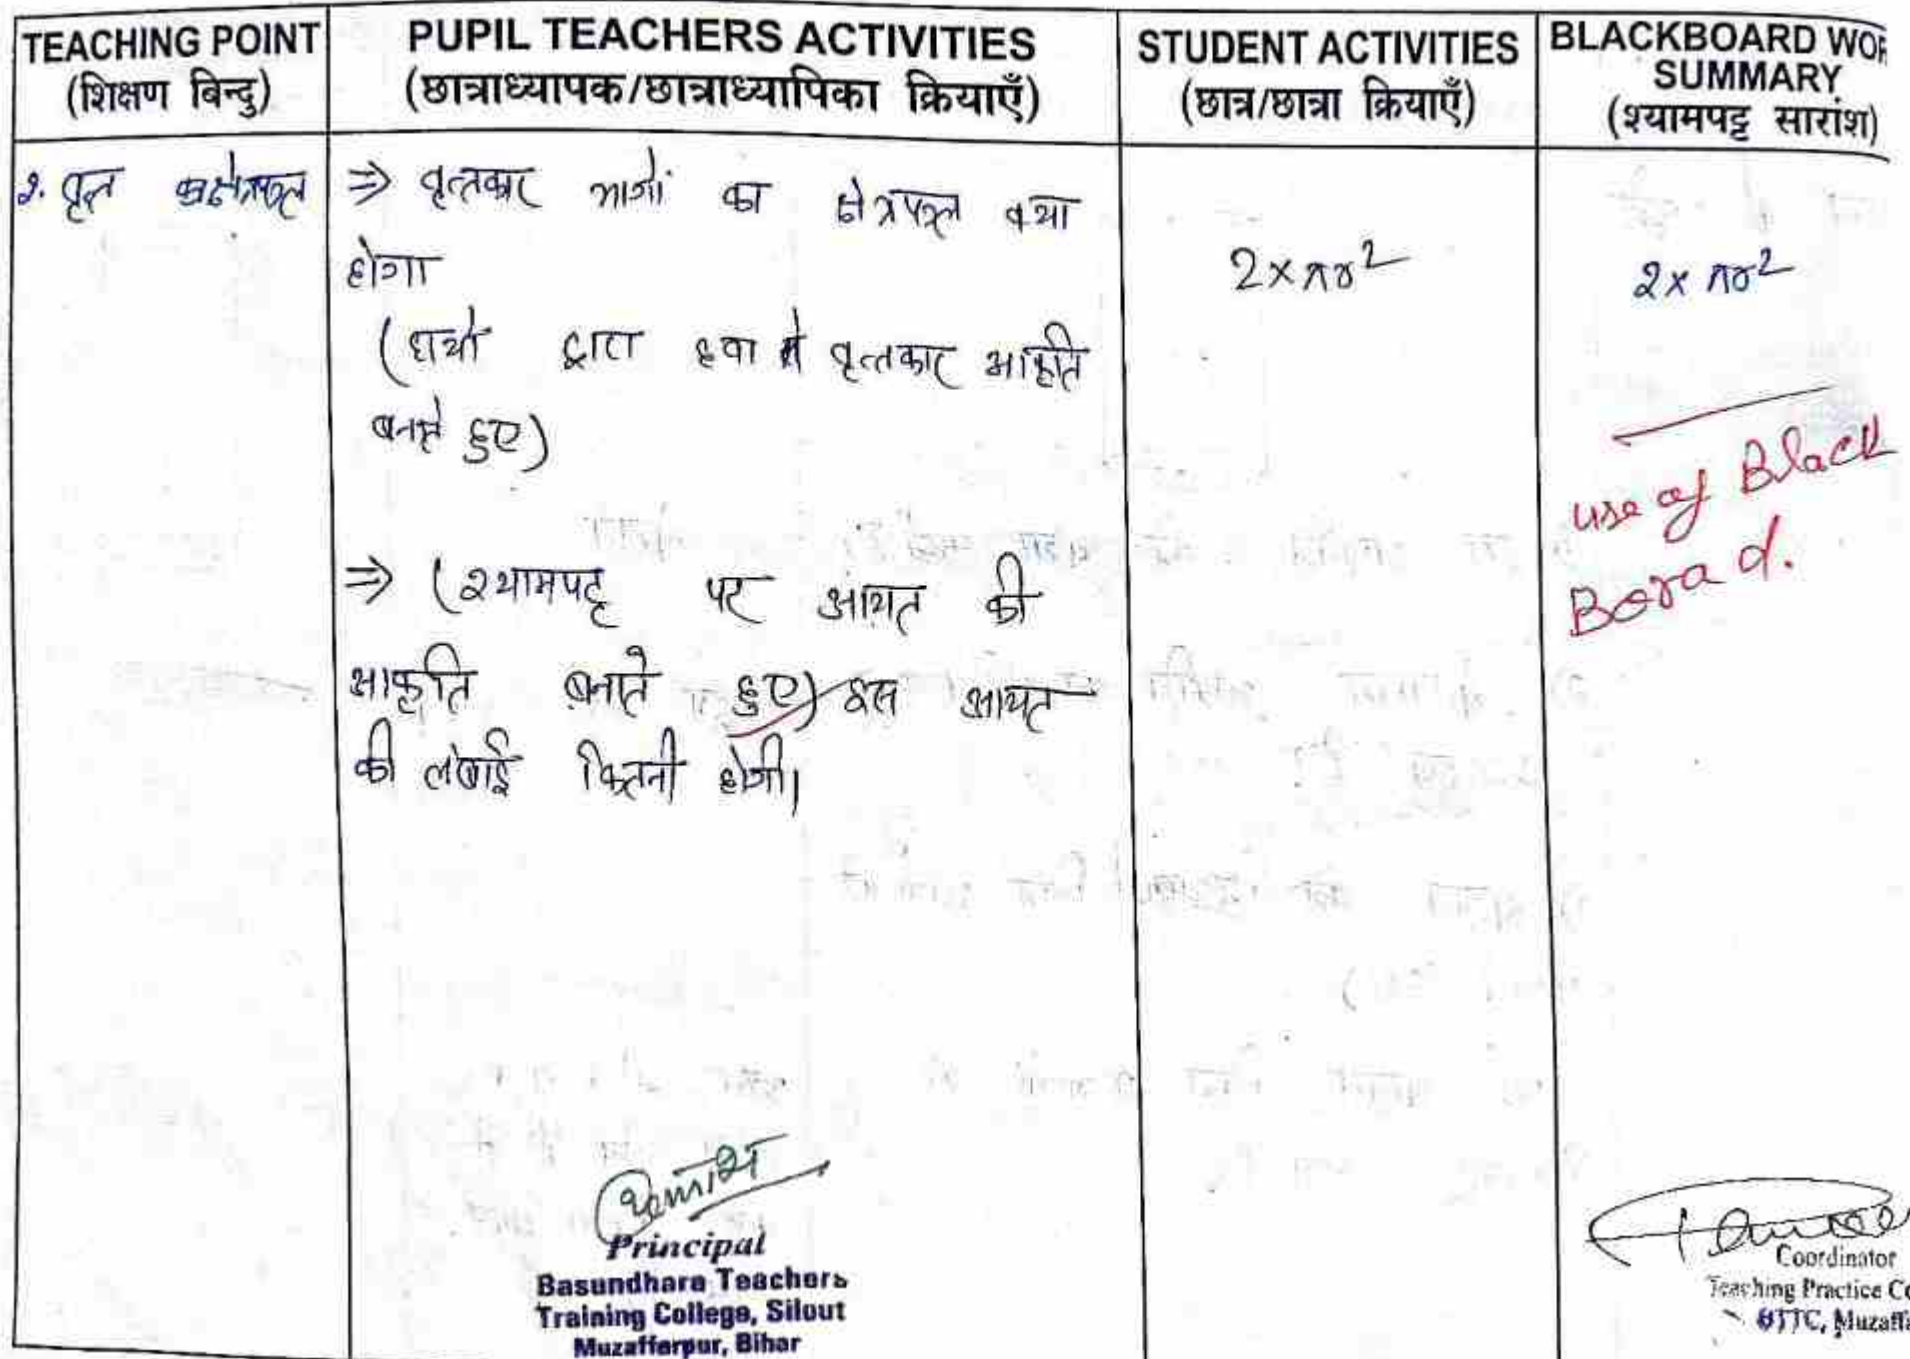 TEACHING POINT
(शिक्षण बिन्दु)
PUPIL TEACHERS ACTIVITIES
(छात्राध्यापक/छात्राध्यापिका क्रियाएँ)
STUDENT ACTIVITIES
(छात्र/छात्रा क्रियाएँ)
BLACKBOARD WOR
SUMMARY
(श्यामपट्ट सारांश)
2. वृत्त का क्षेत्रफल
⇒ वृत्तकार भागों का क्षेत्रफल क्या
होगा
(हाथों द्वारा हवा में वृत्तकार आकृति
बनाते हुए)
2×πr²
2×πr²
use of Black
Borad.
⇒ (श्यामपट्ट पर आयत की
आकृति बनाते हुए) इस आयत
की लंबाई कितनी होगी।
Principal
Basundhara Teachers
Training College, Silout
Muzafferpur, Bihar
Coordinator
Teaching Practice Ce
BTTC, Muzaffa